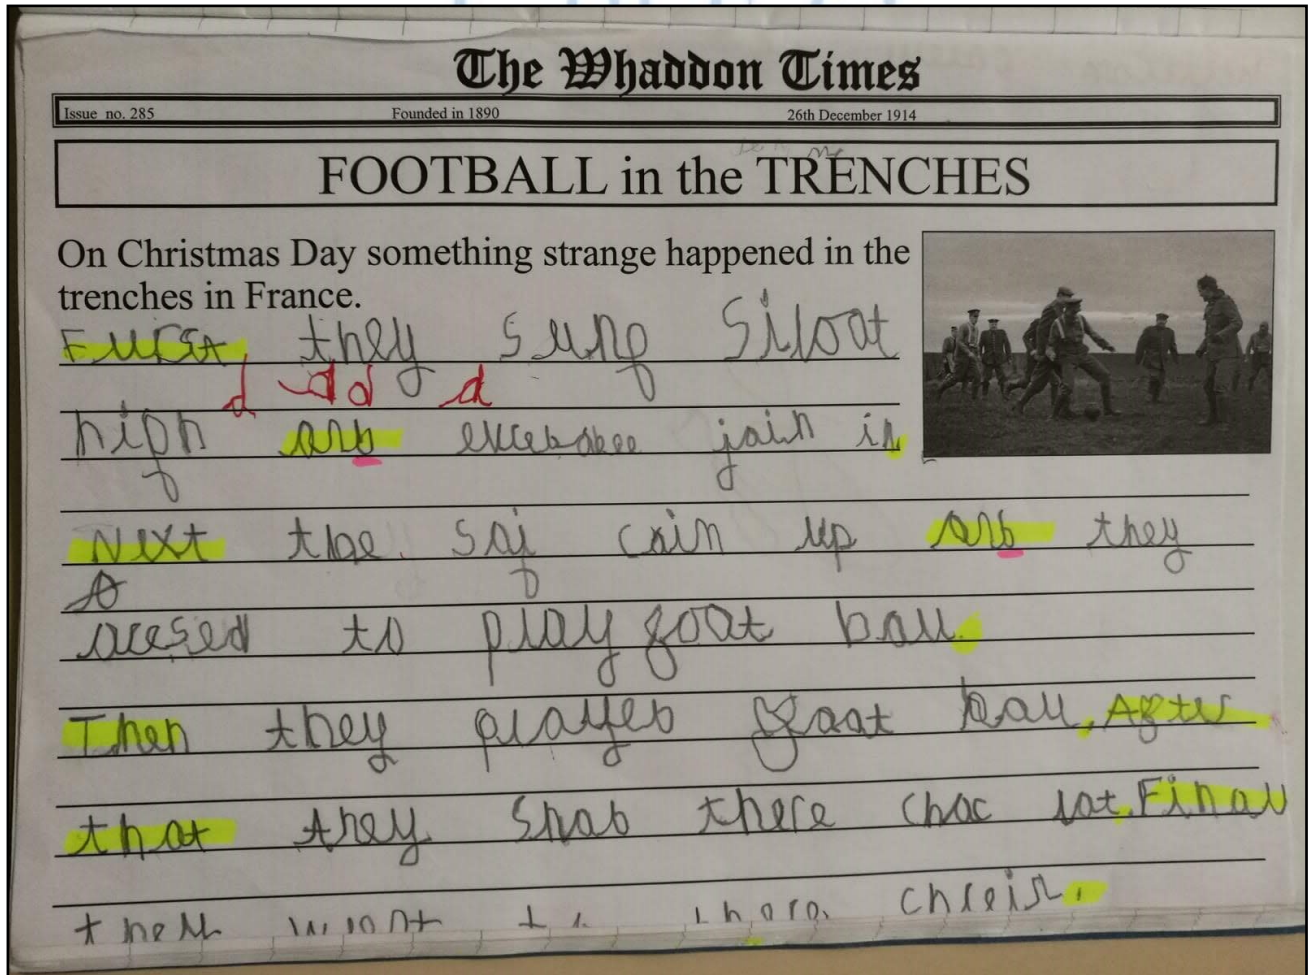 The Whaddon Times
Issue no. 285 Founded in 1890 26th December 1914
FOOTBALL in the TRENCHES
On Christmas Day something strange happened in the
trenches in France.
Furst they sung Siloat
d d d d
high anb excebobee join in
Next the Soj cain up anb they
acesed to play foot ball.
Then they playeb foot ball. After
that they Shab there choc lat. Final
they went to there chreish.